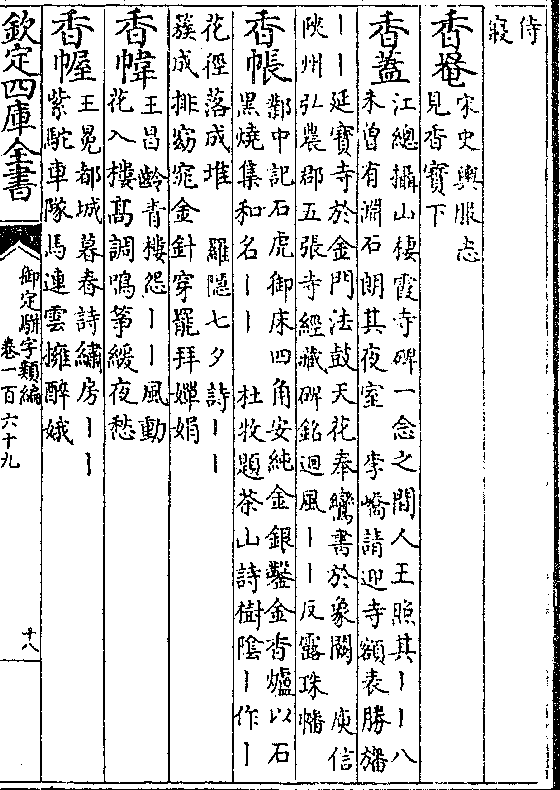 侍
寢
香
宋史輿服志
見香寶下
香蓋
江總攝山棲霞寺碑一念之間人王照其丨丨八
未曾有淵石朗其夜室 李嶠請迎寺額表勝旛
丨丨延寶寺於金門法鼓天花奉鸞書於象闕 庾信
陜州弘農郡五張寺經藏碑銘迴風丨丨反露珠幡
香帳
鄴中記石虎御床四角安純金銀鑿金香爐以石
黑燒集和名丨丨 杜牧題茶山詩樹陰丨作丨
花徑落成堆 羅隱七夕詩丨丨
簇成排窈窕金針穿罷拜嬋娟
香幃
王昌齡青樓怨丨丨風動
花入樓髙調鳴箏緩夜愁
香幄
王冕都城暮春詩繡房丨丨
紫駝車隊馬連雲擁醉娥
欽定四庫全書
御定駢字類編
卷一百六十九
十八